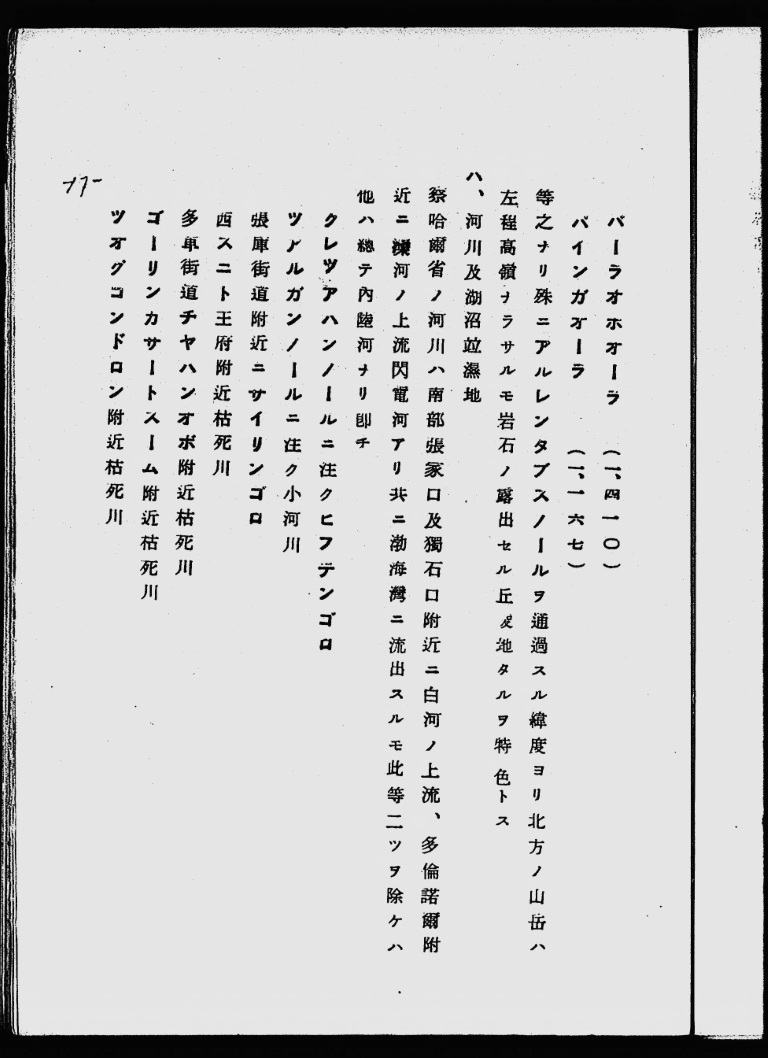 バーラオホオーラ (一、四一〇)
バインガオーラ (一、一六七)
等之ナリ殊ニアルレンタブスノールヲ通過スル緯度ヨリ北方ノ山岳ハ
左程高嶺ナラサルモ岩石ノ露出セル丘陵地タルヲ特色トス
ハ、河川及湖沼竝濕地
察哈爾省ノ河川ハ南部張家口及獨石口附近ニ白河ノ上流、多倫諾爾附
近ニ灤河ノ上流閃電河アリ共ニ渤海灣ニ流出スルモ此等二ツヲ除ケハ
他ハ總テ內陸河ナリ卽チ
クレツアハンノールニ注クヒフテンゴロ
ツアルガンノールニ注ク小河川
張庫街道附近ニサイリンゴロ
西スニト王府附近枯死川
多車街道チヤハンオボ附近枯死川
ゴーリンカサートスーム附近枯死川
ツオグコンドロン附近枯死川